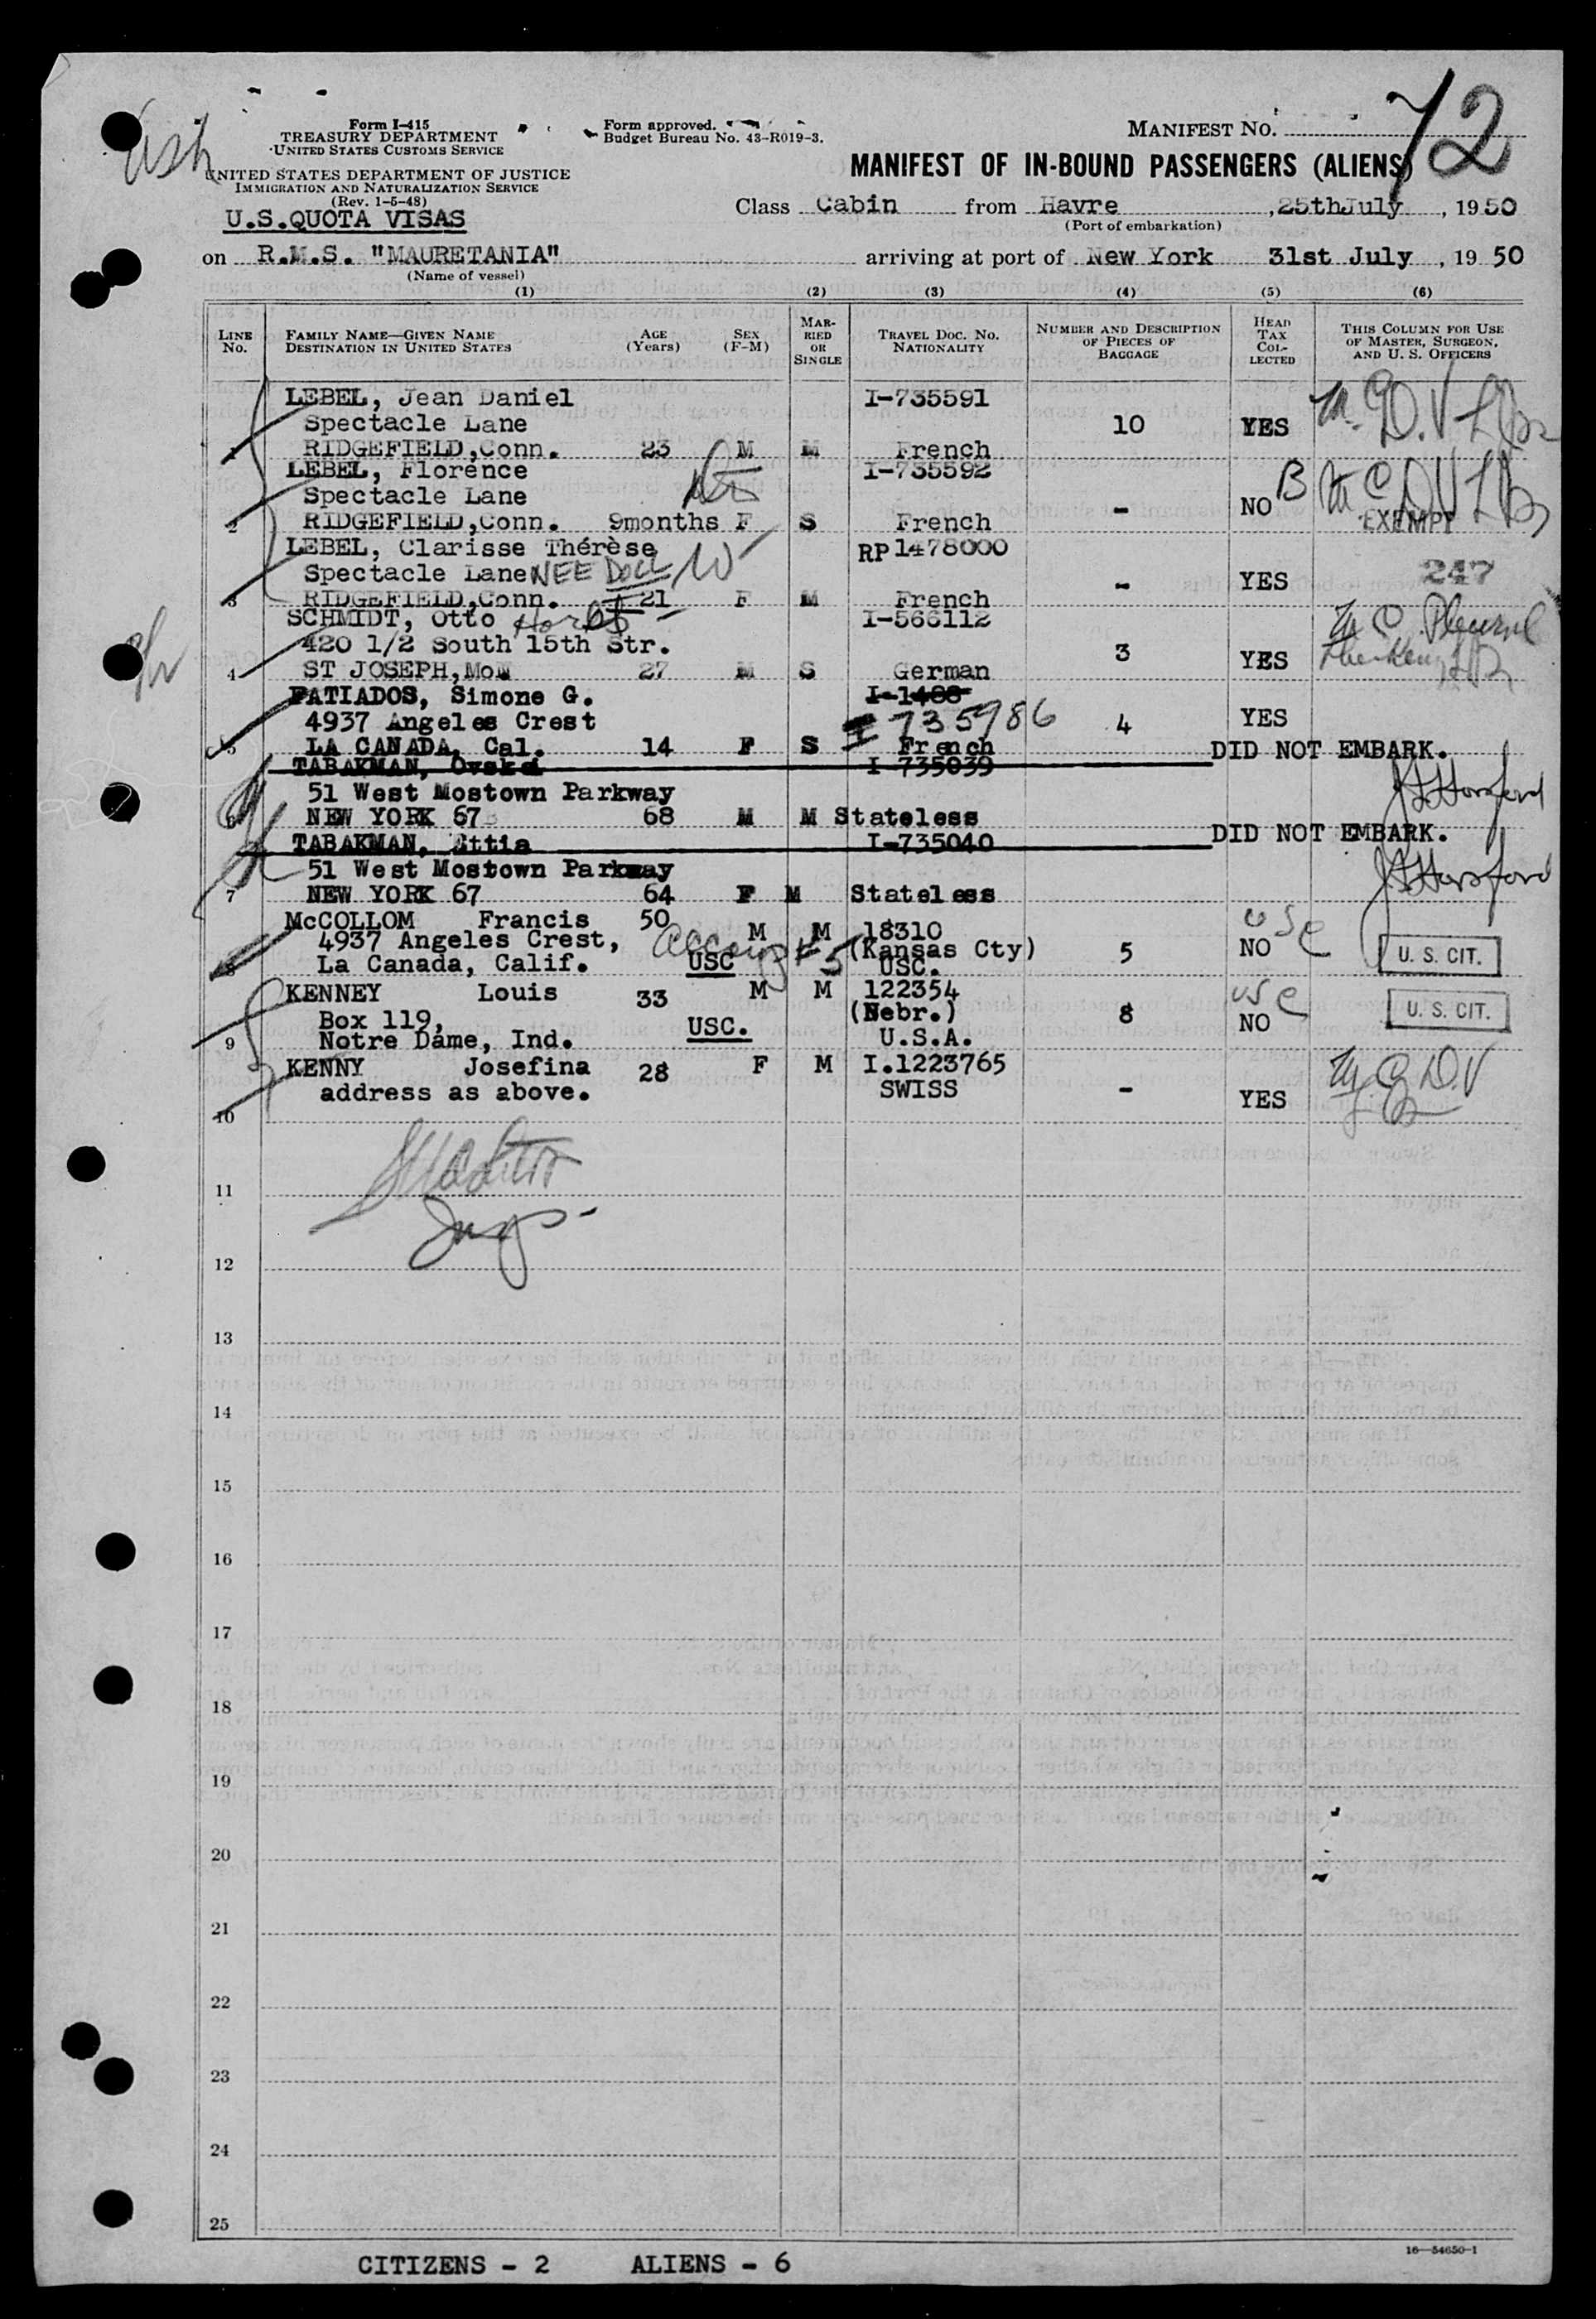 72
Form I-415
TREASURY DEPARTMENT
UNITED STATES CUSTOMS SERVICE
UNITED STATES DEPARTMENT OF JUSTICE
IMMIGRATION AND NATURALIZATION SERVICE
(Rev. 1-5-48)
U.S.QUOTA VISAS
Form approved.
Budget Bureau No. 43-R019-3.
MANIFEST NO.
MANIFEST OF IN-BOUND PASSENGERS (ALIENS)
Class Cabin from Havre ,25thJuly , 1950
(Port of embarkation)
on R.M.S. "MAURETANIA" arriving at port of New York 31st July , 19 50
(Name of vessel)
(1) (2) (3) (4) (5) (6)
LINE No. FAMILY NAME—GIVEN NAME DESTINATION IN UNITED STATES AGE (Years) SEX (F-M) MARRIED OR SINGLE TRAVEL DOC. NO. NATIONALITY NUMBER AND DESCRIPTION OF PIECES OF BAGGAGE HEAD TAX COLLECTED THIS COLUMN FOR USE OF MASTER, SURGEON, AND U. S. OFFICERS
LEBEL, Jean Daniel I-735591
Spectacle Lane 10 YES
RIDGEFIELD,Conn. 23 M M French
LEBEL, Florence I-735592
Spectacle Lane - NO B
2 RIDGEFIELD,Conn. 9months F S French EXEMPT
LEBEL, Clarisse Thérèse RP 1478000
Spectacle Lane NEE DOLL - YES 247
3 RIDGEFIELD,Conn. 21 F M French
SCHMIDT, Otto Horst I-566112
420 1/2 South 15th Str. 3 YES
4 ST JOSEPH,Mo 27 M S German
PATIADOS, Simone G. I-1488
4937 Angeles Crest I 735986 4 YES
5 LA CANADA, Cal. 14 F S French
TABAKMAN, I-735039 DID NOT EMBARK.
51 West Mostown Parkway
6 NEW YORK 67 68 M M Stateless
TABAKMAN, Ettia I-735040 DID NOT EMBARK.
51 West Mostown Parkway
7 NEW YORK 67 64 F M Stateless
McCOLLOM Francis 50 M M 18310 USC
4937 Angeles Crest, accomp #5 (Kansas Cty) 5 NO U. S. CIT.
8 La Canada, Calif. USC USC.
KENNEY Louis 33 M M 122354 USC
Box 119, (Nebr.) 8 NO U. S. CIT.
9 Notre Dame, Ind. USC. U.S.A.
KENNY Josefina 28 F M I.1223765
address as above. SWISS - YES
10
11
12
13
14
15
16
17
18
19
20
21
22
23
24
25
16—54650-1
CITIZENS - 2 ALIENS - 6